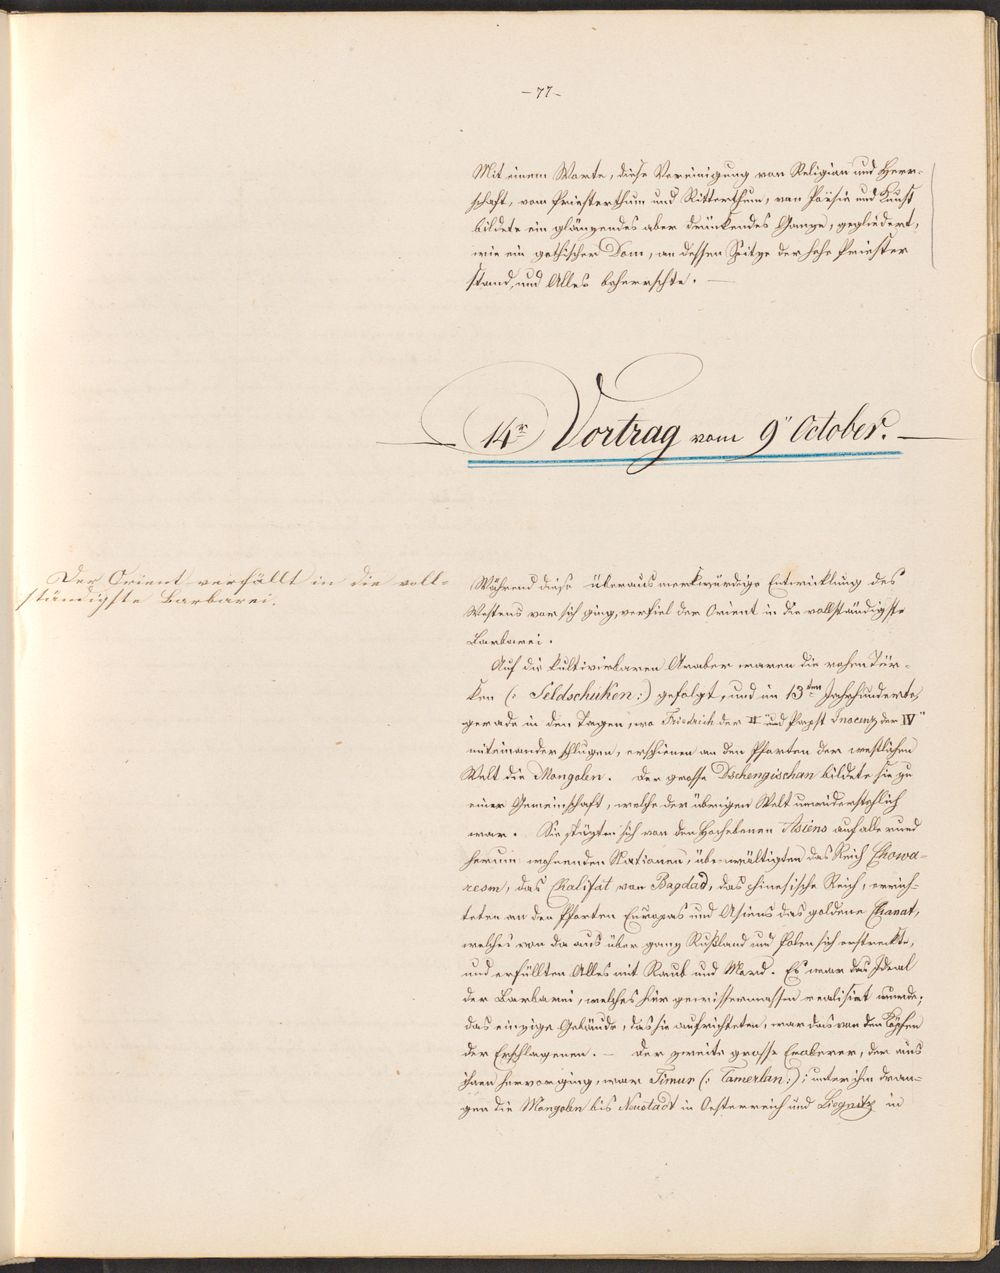 - 77 -
Mit einem Worte, diese Vereinigung von Religion und Herr-
schaft, vom Priesterthum und Ritterthum, von Poësie und Kunst
bildete ein glänzendes aber drückendes Ganze, gegliedert,
wie ein gothischer Dom, an dessen Spitze der hohe Priester
stand, und Alles beherrschte. —
14r Vortrag vom 9" October.
Der Orient verfällt in die voll-
ständigste Barbarei.
Während diese überaus merkwürdige Entwicklung des
Westens vor sich ging, verfiel der Orient in die vollständigste
Barbarei.
Auf die kultivirbaren Araber waren die rohen Tür-
ken (: Seldschuken :) gefolgt, und im 13ten Jahrhunderte,
gerade in den Tagen, wo Friedrich der II" und Papst Inocentz der IV"
miteinander schlugen, erschienen an den Pforten der westlichen
Welt die Mongolen. Der grosse Dschengischan bildete sie zu
einer Gemeinschaft, welche der übrigen Welt unwiderstehlich
war. Sie stürzten sich von den Hochebenen Asiens auf alle rund
herum wohnenden Nationen, überwältigten das Reich Chowa-
resm, das Chalifat von Bagdad, das chinesische Reich, errich-
teten an den Pforten Europas und Asiens das goldene Chanat,
welches von da aus über ganz Rußland und Polen sich erstreckte,
und erfüllten Alles mit Raub und Mord. Es war das Ideal
der Barbarei, welches hier gewissermassen realisirt wurde;
das einzige Gebäude, das sie aufrichteten, war das von den Köpfen
der Erschlagenen. — Der zweite grosse Eroberer, der aus
ihnen hervorging, war Timur (: Tamerlan :); unter ihm dran-
gen die Mongolen bis Neustadt in Oesterreich und Liegnitz in